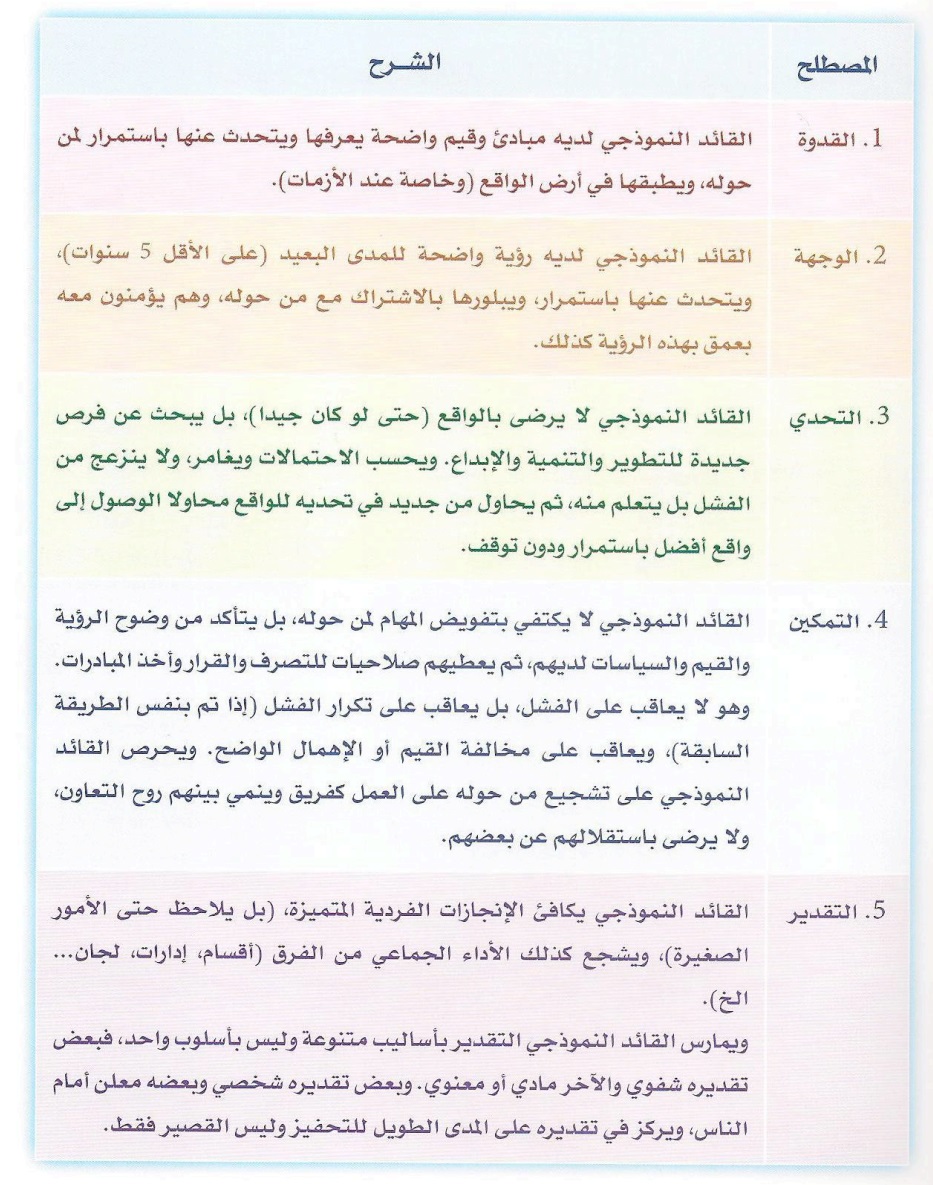 المصطلح الشــرح
1. القدوة القائد النموذجي لديه مبادئ وقيم واضحة يعرفها ويتحدث عنها باستمرار لمن
حوله، ويطبقها في أرض الواقع (وخاصة عند الأزمات).
2. الوجهة القائد النموذجي لديه رؤية واضحة للمدى البعيد (على الأقل 5 سنوات)،
ويتحدث عنها باستمرار، ويبلورها بالاشتراك مع من حوله، وهم يؤمنون معه
بعمق بهذه الرؤية كذلك.
3. التحدي القائد النموذجي لا يرضى بالواقع (حتى لو كان جيدا)، بل يبحث عن فرص
جديدة للتطوير والتنمية والإبداع. ويحسب الاحتمالات ويغامر، ولا ينزعج من
الفشل بل يتعلم منه، ثم يحاول من جديد في تحديه للواقع محاولا الوصول إلى
واقع أفضل باستمرار ودون توقف.
4. التمكين القائد النموذجي لا يكتفي بتفويض المهام لمن حوله، بل يتأكد من وضوح الرؤية
والقيم والسياسات لديهم، ثم يعطيهم صلاحيات للتصرف والقرار وأخذ المبادرات.
وهو لا يعاقب على الفشل، بل يعاقب على تكرار الفشل (إذا تم بنفس الطريقة
السابقة)، ويعاقب على مخالفة القيم أو الإهمال الواضح. ويحرص القائد
النموذجي على تشجيع من حوله على العمل كفريق وينمي بينهم روح التعاون،
ولا يرضى باستقلالهم عن بعضهم.
5. التقدير القائد النموذجي يكافئ الإنجازات الفردية المتميزة، (بل يلاحظ حتى الأمور
الصغيرة)، ويشجع كذلك الأداء الجماعي من الفرق (أقسام، إدارات، لجان...
الخ).
ويمارس القائد النموذجي التقدير بأساليب متنوعة وليس بأسلوب واحد، فبعض
تقديره شفوي والآخر مادي أو معنوي. وبعض تقديره شخصي وبعضه معلن أمام
الناس، ويركز في تقديره على المدى الطويل للتحفيز وليس القصير فقط.